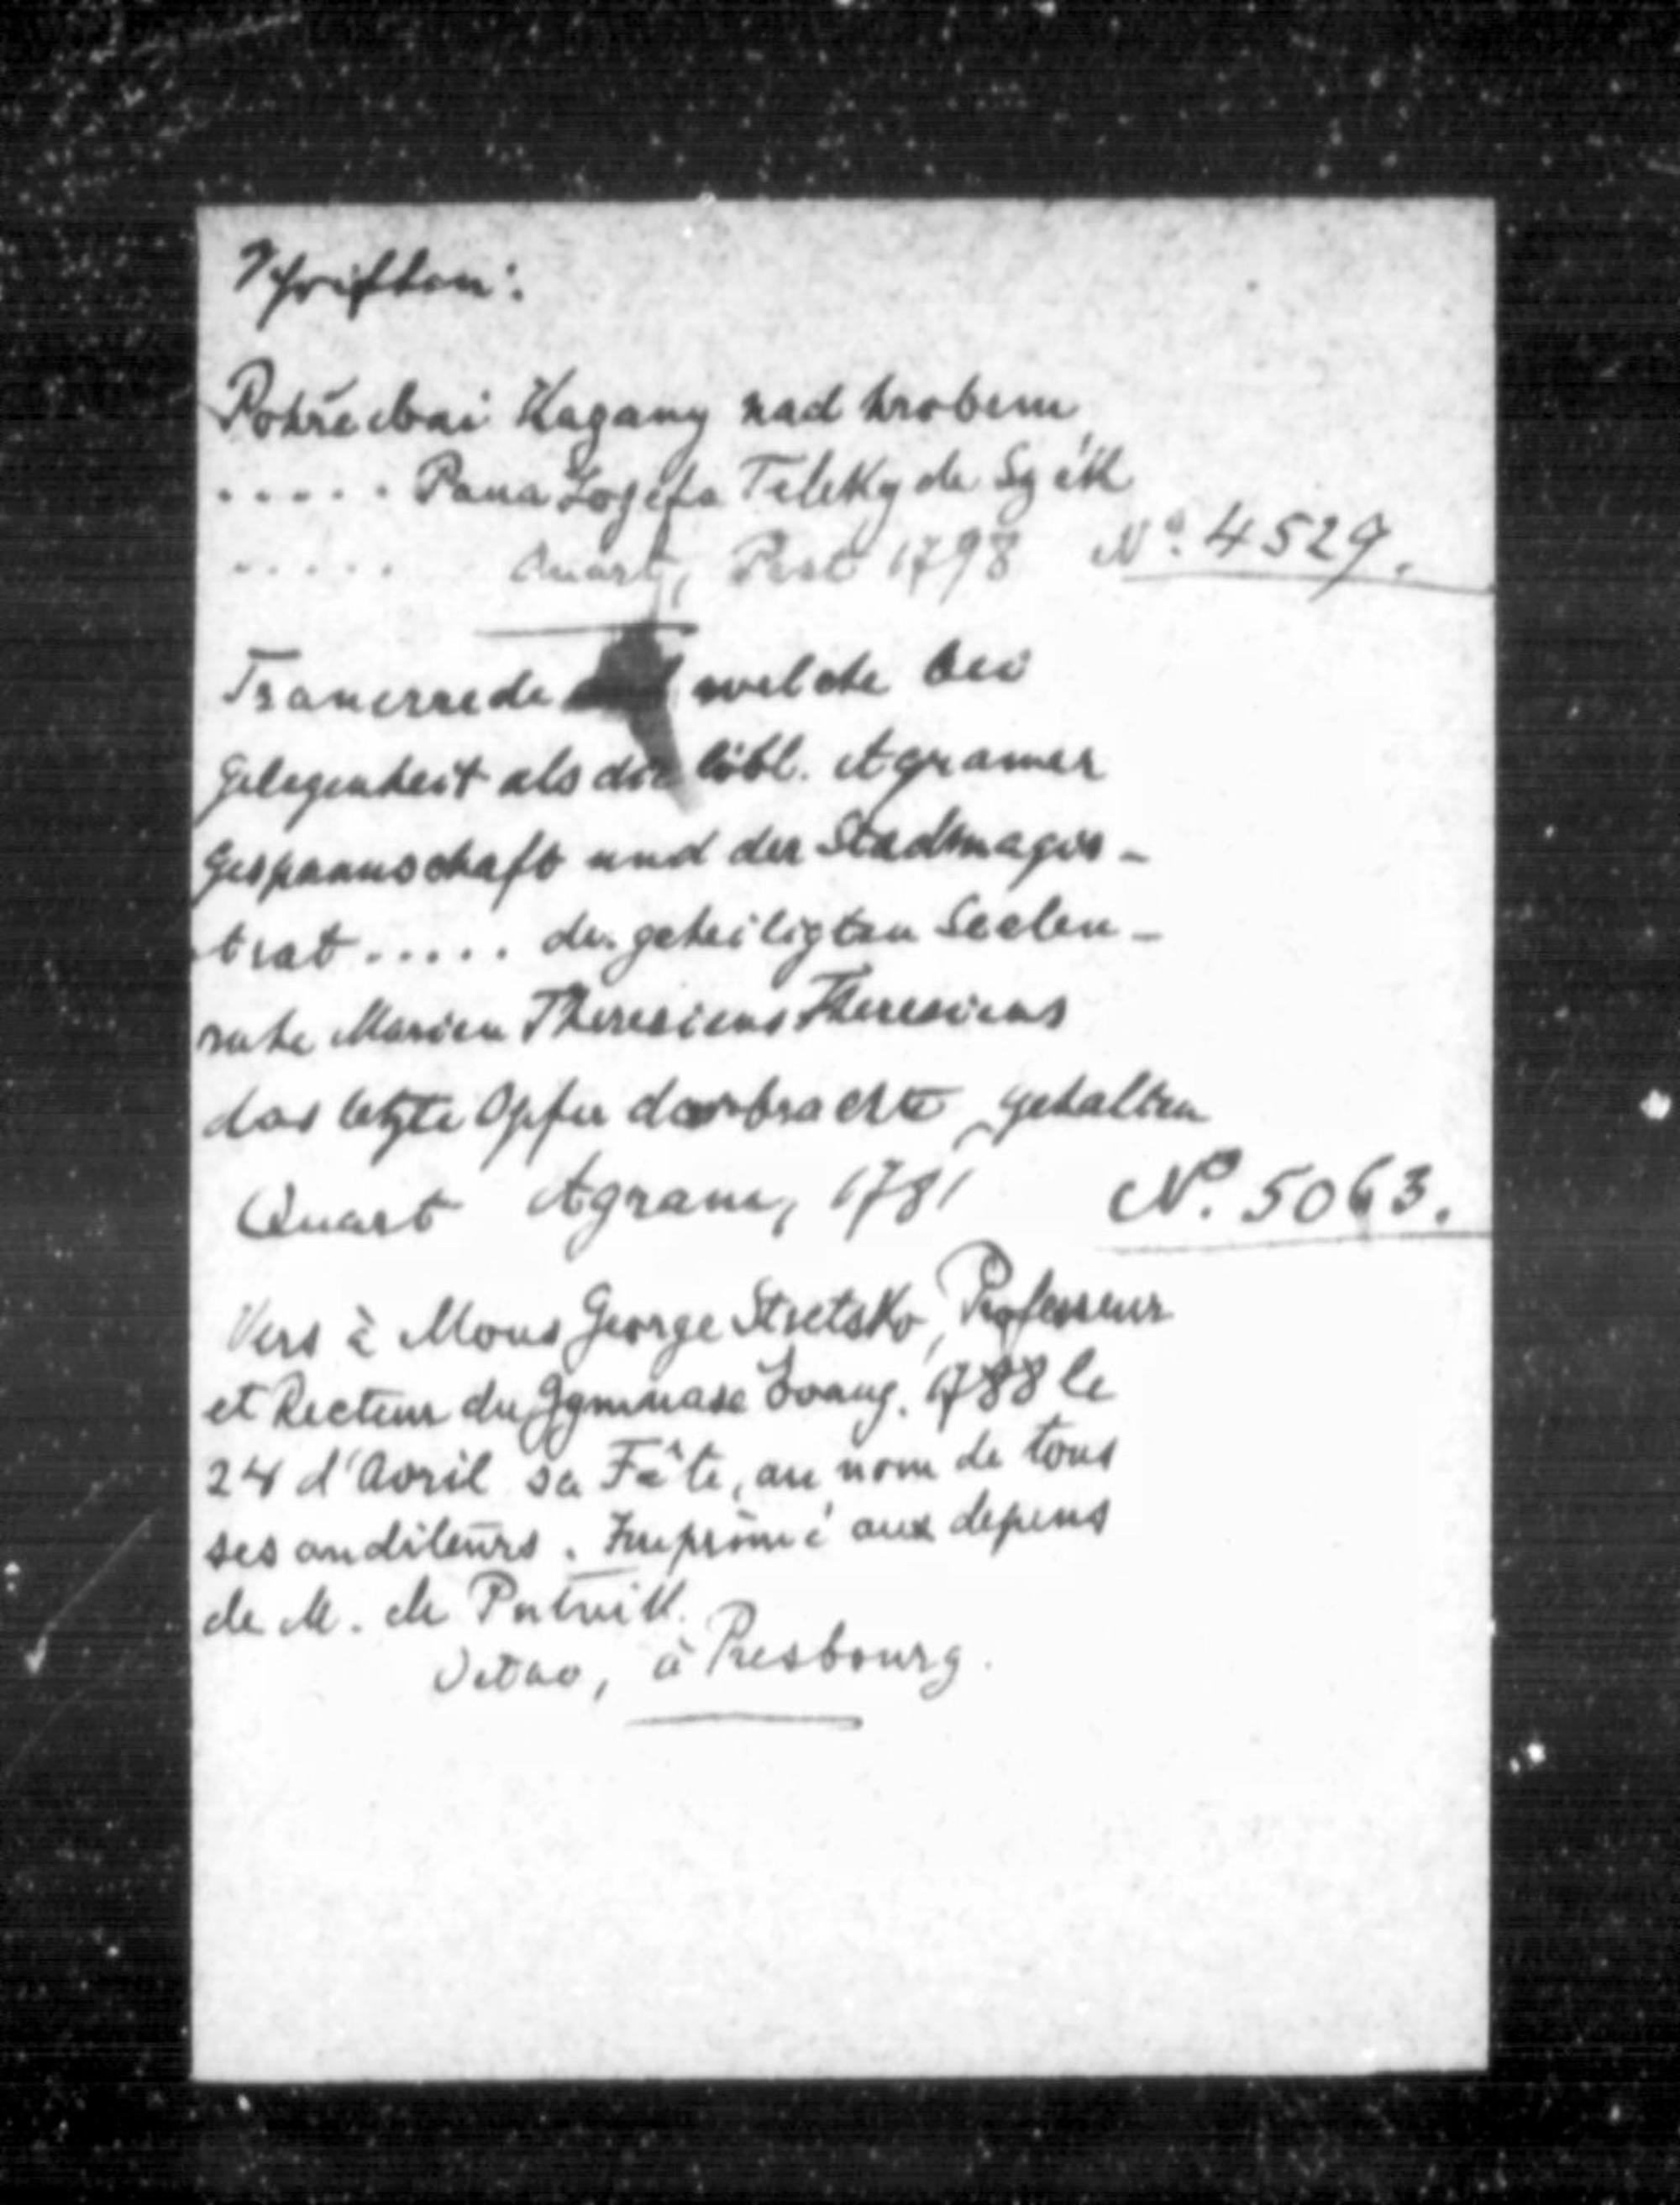 Schriften:
Pohřebai Kazany nad hrobem
..... Pana Jozefa Teleky de Szék
..... Quart, Pest 1798 No. 4529.
Trauerrede welche bei
Gelegenheit als die löbl. Agramer
Gespannschaft und der Stadtmagis-
trat ..... der geheiligten Seelen-
ruhe Marien Theresiens Theresiens
das letzte Opfer darbrachte, gehalten
Quart Agram, 1781 No. 5063.
Vers à Mons George Stretsko, Professeur
et Recteur du Gymnase Evang. 1788 le
24 d'Avril sa Fête, au nom de tous
ses auditeurs. Imprimé aux depens
de M. de
Octav, à Presbourg.